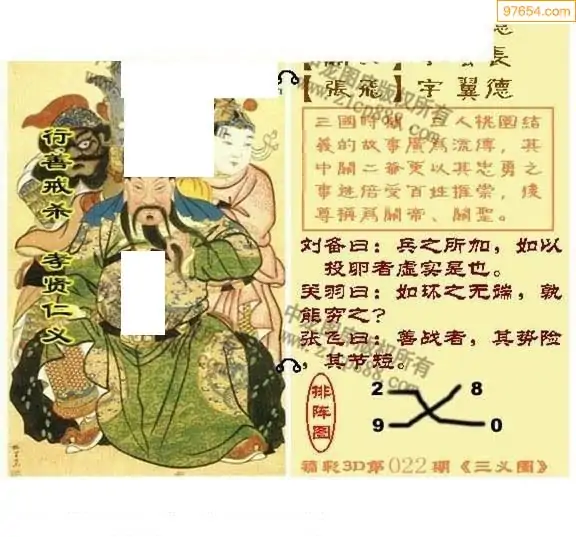 97654.com
【張飛】字 翼德
行善戒杀 孝贤仁义
三國時期，三人桃園結
義的故事廣爲流傳，其
中關二爺更以其忠勇之
事迹倍受百姓推崇，後
尊稱爲關帝、關聖。
刘备曰：兵之所加，如以
投卵者虚实是也。
关羽曰：如环之无端，孰
能穷之？
张飞曰：善战者，其势险
，其节短。
排阵图
2 8
9 0
福彩3D第022期《三义图》